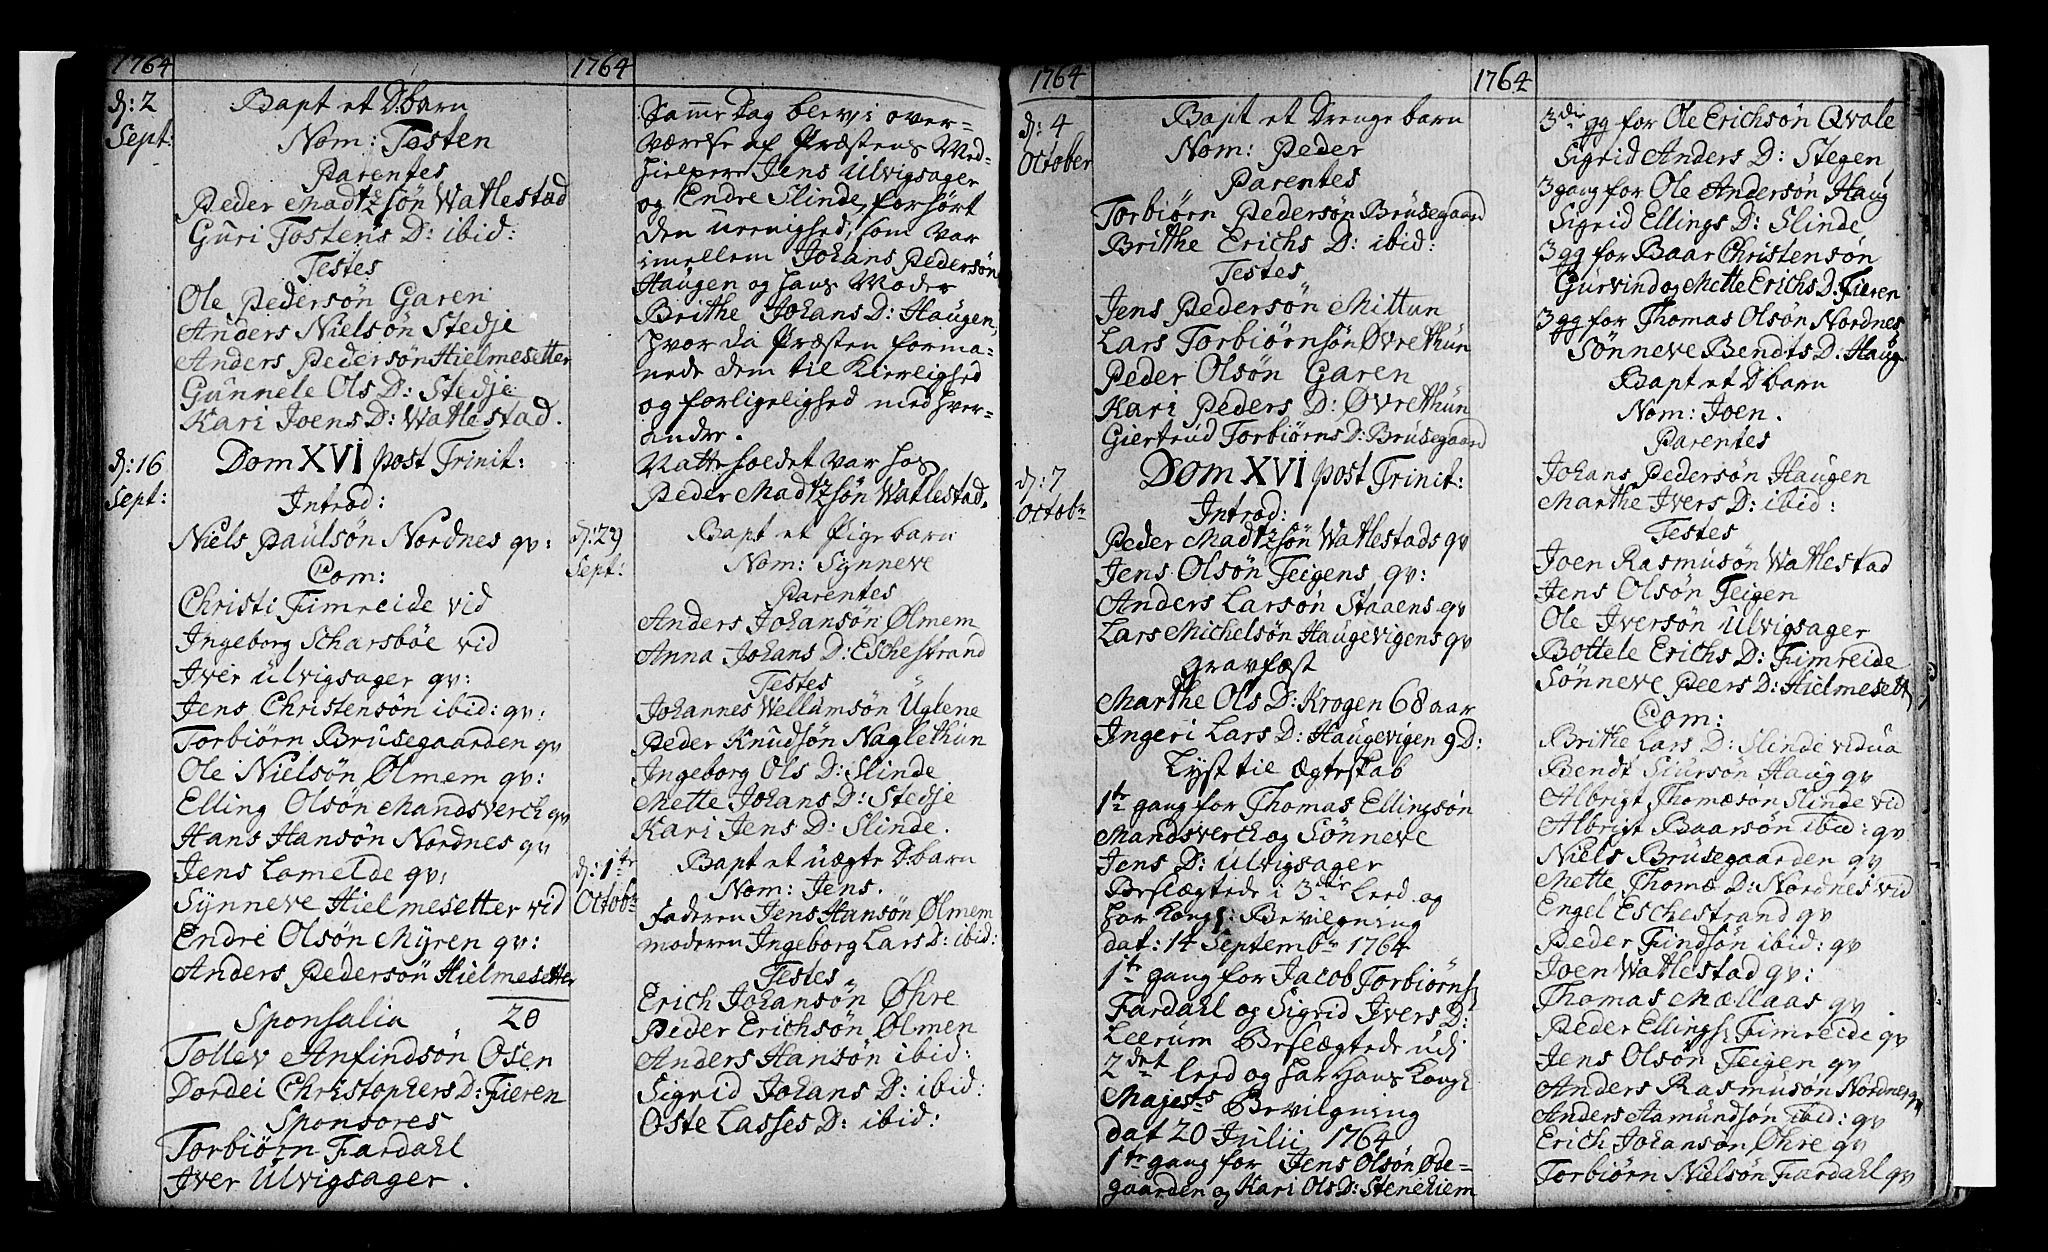 1764
d: 2
Sept:
Bapt et D:barn
Nom: Tosten
Parentes
Peder Madtzsön Watlestad
Guri Tostens D: ibid:
Testes
Ole Pedersön Garen
Anders Nielsön Stedje
Anders Pedersön Hielmesetter
Gunnele Ols D: Stedje
Kari Joens D: Watlestad.
d: 16
Sept:
Dom XVI post Trinit:
Introd:
Niels Paulsön Nordnes qv:
Com:
Christi Fimreide vid
Ingeborg Scharsböe vid
Iver Ulvigsager qv:
Jens Christensön ibid: qv:
Torbiörn Brusegaarden qv
Ole Nielsön Ølmem qv:
Elling Olsön Mandsverch qv
Hans Hansön Nordnes qv
Jens Lomelde qv:
Synneve Hielmesetter vid
Endre Olsön Myren qv:
Anders Pedersön Hielmesetter
20
Sponsalia
Tollev Anfindsön Osen
Dordei Christophers D: Fieren
Sponsores
Torbiörn Fardahl
Iver Ulvigsager.
1764
Samme Dag blev i over-
værelse af Præstens Med-
hielpere Jens Ulvigsager
og Endre Slinde, forhört
den uenighed, som var
imellem Johans Pedersön
Haugen og hans Moder
Brithe Johans D: Haugen,
hvor da Præsten forma-
nede dem til Kierlighed
og forligelighed med hver-
andre.
Natteholdet var hos
Peder Madtzsön Watlestad.
d: 29
Sept:
Bapt et Pigebarn
Nom: Synneve
Parentes
Anders Johansön Ølmem
Anna Johans D: Eschestrand
Testes
Johannes Wellumsön Uglene
Peder Knudsön Naglethun
Ingeborg Ols D: Slinde
Mette Johans D: Stedje
Kari Jens D: Slinde.
d: 1te
Octobr
Bapt et uægte D:barn
Nom: Jens.
Faderen Jens Hansön Ølmem
moderen Ingeborg Lars D: ibid:
Testes
Erich Johansön Øhre
Peder Erichsön Ølmen
Anders Hansön ibid:
Sigrid Johans D: ibid:
Oste Lasses D: ibid:
1764
d: 4
October
Bapt et Drengebarn
Nom: Peder
Parentes
Torbiörn Pedersön Brusegaard
Brithe Erichs D: ibid:
Testes
Jens Pedersön Mittun
Lars Torbiörnsön Øvrethun
Peder Olsön Garen
Kari Peders D: Øvrethun
Giertrud Torbiörns D: Brusegaard
d: 7
Octobr
Dom XVI post Trinit:
Introd:
Peder Madtzsön Watlestads qv
Jens Olsön Teigens qv:
Anders Larsön Staaens qv
Lars Michelsön Haugevigens qv
gravfæst
Marthe Ols D: Krogen 68 aar
Ingeri Lars D: Haugevigen 9 D:
Lyst til Ægteskab
1te gang for Thomas Ellingsön
Mandsverch og Sönneve
Jens D: Ulvigsager
Beslægtede i 3die Leed og
har Kongl: Bevilgning
dat: 14 Septembr 1764
1te gang for Jacob Torbiörns:
Fardahl og Sigrid Ivers D:
Leerum Beslægtede udi
2det Leed og har Hans Kongl
Majests Bevilgning
dat 20 Julii 1764
1te gang for Jens Olsön Øde-
gaarden og Kari Ols D: Stenehiem
1764
3die gg for Ole Erichsön Qvale
Sigrid Anders D: Stegen
3 gang for Ole Andersön Haug
Sigrid Ellings D: Slinde
3 gg for Baar Christensön
Gurvin og Mette Erichs D: Fieren
3 gg for Thomas Olsön Nordnes
Sönneve Bendts D: Haug
Bapt et D:barn
Nom: Joen.
Parentes
Johans Pedersön Haugen
Marthe Ivers D: ibid:
Testes
Joen Rasmusön Watlestad
Jens Olsön Teigen
Ole Iversön Ulvigsager
Bottele Erichs D: Fimreide
Sönneve Peers D: Hielmesett
Com:
Brithe Lars D: Slinde vidua
Bendt Siursön Haug qv
Albrigt Thomæsön Slinde vid
Albrigt Baarsön ibid: qv
Niels Brusegaarden qv
Mette Thomæ D: Nordnes vid
Engel Eschestrand qv
Peder Findsön ibid: qv
Joen Watlestad qv:
Thomas Mællaas qv
Peder Ellings: Fimreide qv
Jens Olsön Teigen qv
Anders Rasmusön Nordnes qv
Anders Aamundsön ibid: qv
Erich Johansön Øhre qv
Torbiörn Nielsön Fardahl qv